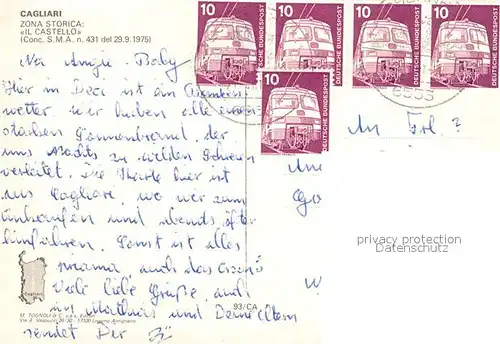 CAGLIARI
ZONA STORICA:
«IL CASTELLO»
(Conc. S.M.A. n. 431 del 29.9.1975)
10 DEUTSCHE BUNDESPOST
10 DEUTSCHE BUNDESPOST
10 DEUTSCHE BUNDESPOST
10 DEUTSCHE BUNDESPOST
10 DEUTSCHE BUNDESPOST
6503
Na Baby
Hier in ist ein Bomben-
wetter wir haben alle einen
starken Sonnenbrand, der
uns Nachts zu wilden Schreien
verleitet. Die Karte hier ist
aus Cagliari, wo wir zum
einkaufen und abends öfter
hinfahren. Sonst ist alles
prima, auch das Essen
Viele liebe Grüße, auch
an Matthias und Deine Eltern
sendet Der
An Frl.?
privacy protection
Datenschutz
Cagliari
93/CA